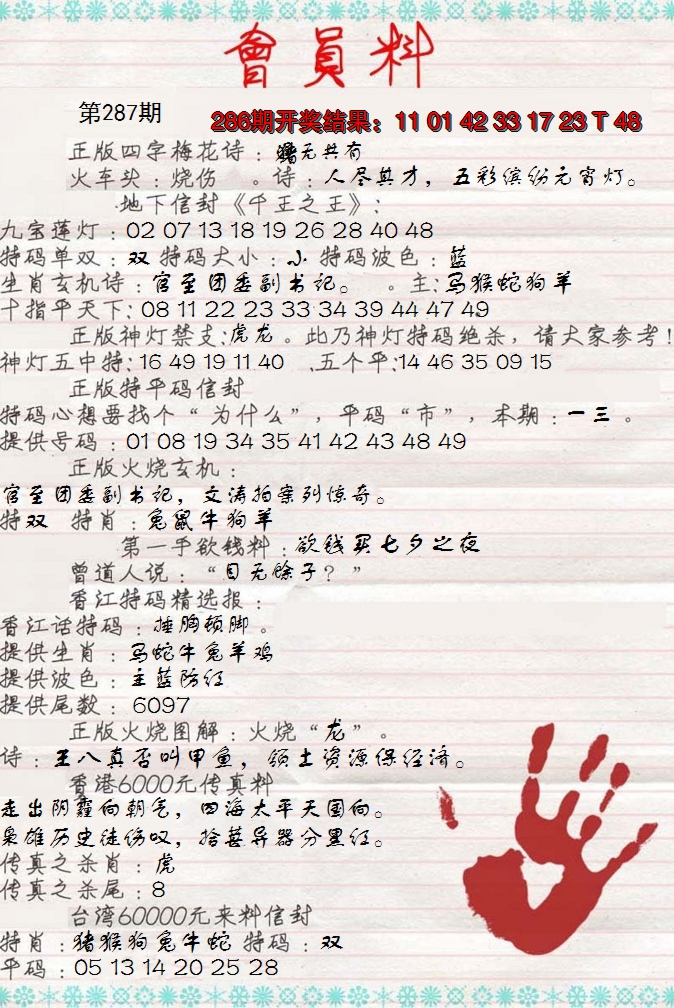 會員料
第287期
286期开奖结果：11 01 42 33 17 23 T 48
正版四字梅花诗：曙无共有
火车头：烧伤 。诗：人尽其才，五彩缤纷元宵灯。
地下信封《千王之王》：
九宝莲灯：02 07 13 18 19 26 28 40 48
特码单双：双 特码大小：小 特码波色：蓝
生肖玄机诗：官至团委副书记。 。主：马猴蛇狗羊
十指平天下：08 11 22 23 33 34 39 44 47 49
正版神灯禁支：虎龙。此乃神灯特码绝杀，请大家参考！
神灯五中特：16 49 19 11 40 .五个平：14 46 35 09 15
正版特平码信封
特码心想要找个“为什么”，平码“市”，本期：一三。
提供号码：01 08 19 34 35 41 42 43 48 49
正版火烧玄机：
官至团委副书记，文涛拍案列惊奇。
特双 特肖：兔鼠牛狗羊
第一手欲钱料：欲钱买七夕之夜
曾道人说：“目无馀子？”
香江特码精选报：
香江话特码：捶胸顿脚。
提供生肖：马蛇牛兔羊鸡
提供波色：主蓝防红
提供尾数：6097
正版火烧图解：火烧“龙”。
诗：王八真否叫甲鱼，领土资源保经济。
香港6000元传真料
走出阴霾向朝气，四海太平天国向。
枭雄历史徒伤叹，拾甚异器分黑红。
传真之杀肖：虎
传真之杀尾：8
台湾60000元来料信封
特肖：猪猴狗兔牛蛇 特码：双
平码：05 13 14 20 25 28